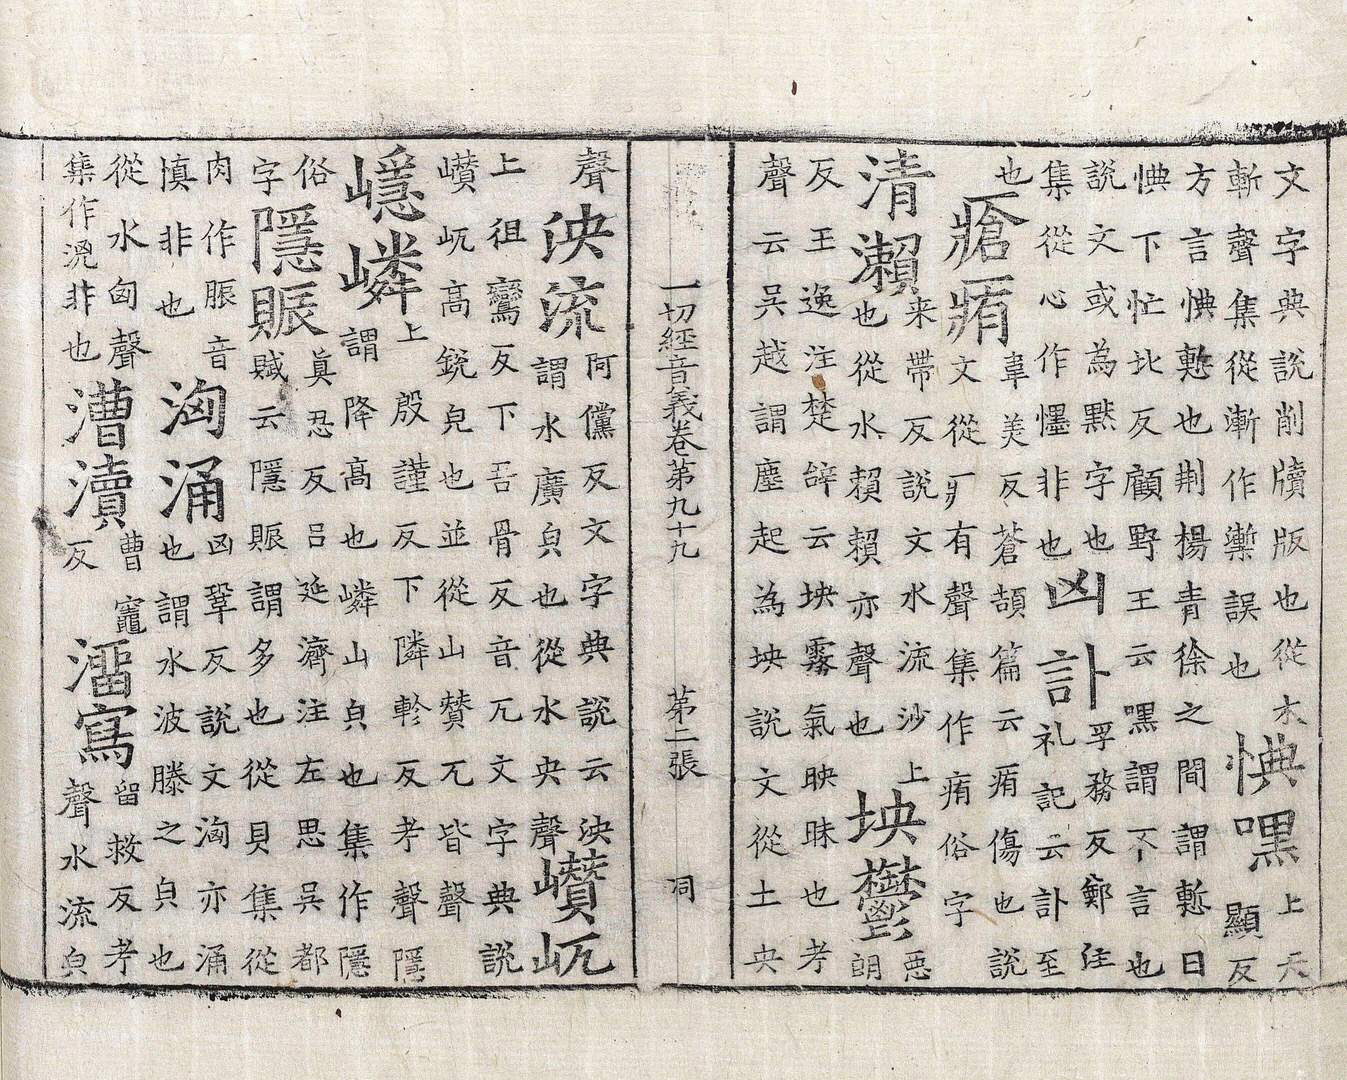 文字典説削牘版也從木
斬聲集從漸作槧誤也
㥏嘿
上天
顯反
方言㥏慙也荆楊青徐之間謂慙曰
㥏下忙北反顧野王云嘿謂不言也
説文或為黙字也
集從心作㦄非也
凶訃
孚務反鄭注
礼記云訃至
也
瘡痏
韋美反蒼頡篇云痏傷也説
文從疒有聲集作痏俗字
清瀨
来帶反説文水流沙上
也從水賴賴亦聲也
坱鬱
悪
朗
反王逸注楚辝云坱霧氣昳昧也考
聲云吴越謂塵起為坱説文從土央
一切經音義卷第九十九 第二張 洞
聲
泱流
阿儻反文字典説云泱
謂水廣皃也從水央聲
巑岏
上徂鸞反下吾骨反音兀文字典説
巑岏髙鋭皃也並從山贊兀皆聲
嶾嶙
上殷謹反下隣軫反考聲隱
謂降髙也嶙山皃也集作隱
俗
字
隱賑
真忍反吕延濟注左思吴都
賦云隱賑謂多也從貝集從
肉作脤音
慎非也
洶涌
凶鞏反説文洶亦涌
也謂水波騰之皃也
從水匈聲
集作㴏非也
漕瀆
曹竈
反
溜寫
留救反考
聲水流皃